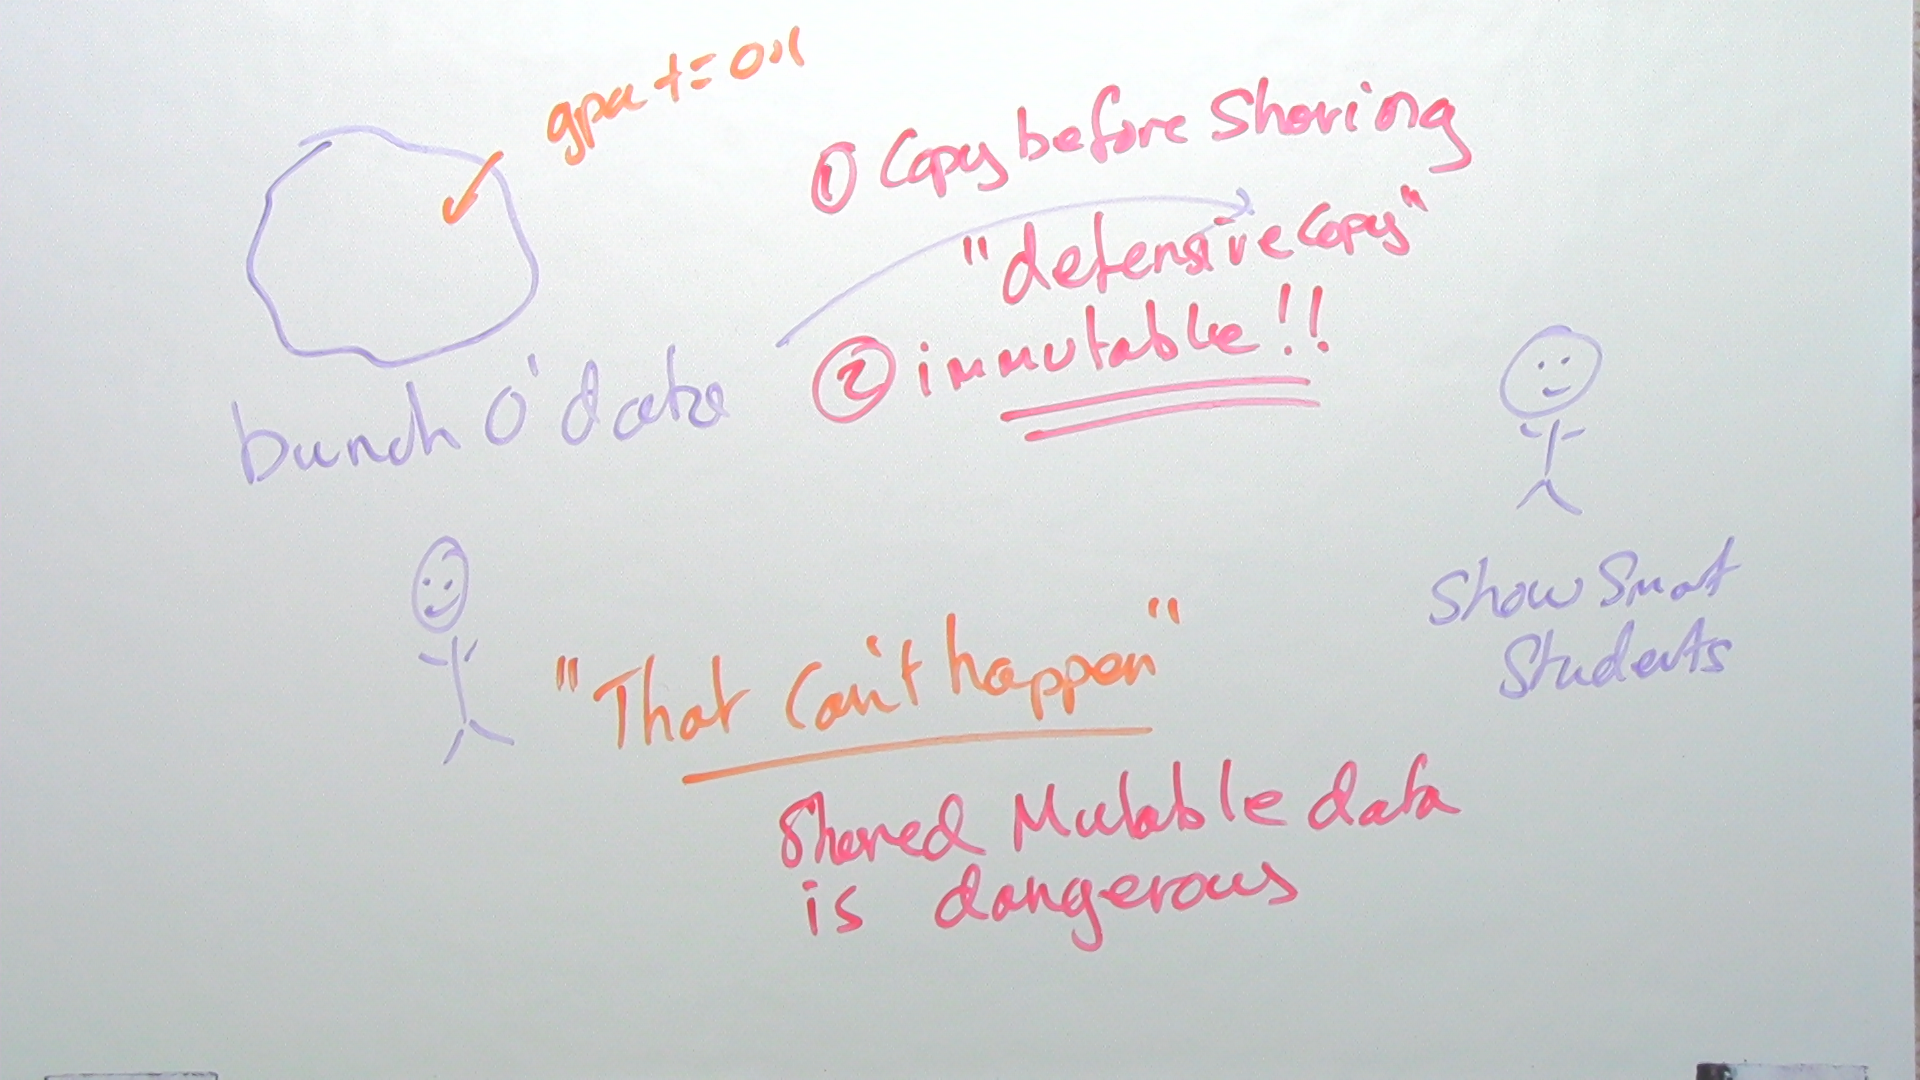 gpa += 0.1
① Copy before Sharing
"defensive copy"
② immutable!!
bunch o' data
Show Smart
Students
"That can't happen"
Shared Mutable data
is dangerous